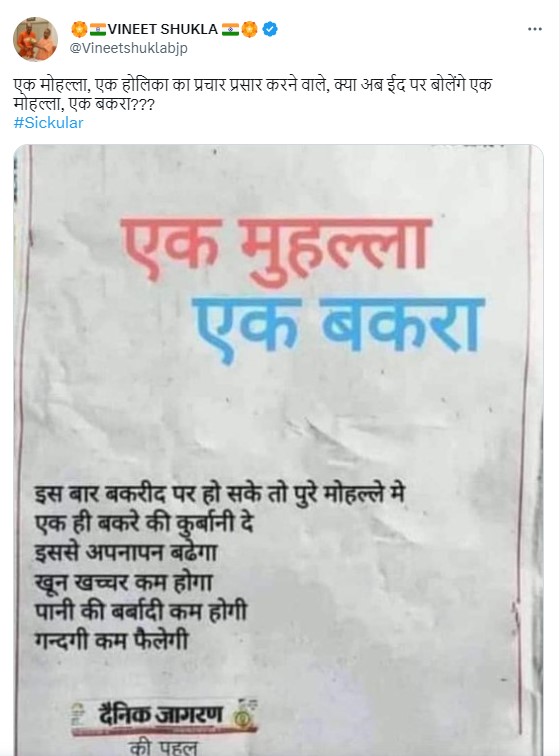 VINEET SHUKLA
@Vineetshuklabjp
एक मोहल्ला, एक होलिका का प्रचार प्रसार करने वाले, क्या अब ईद पर बोलेंगे एक
मोहल्ला, एक बकरा???
#Sickular
एक मुहल्ला
एक बकरा
इस बार बकरीद पर हो सके तो पुरे मोहल्ले मे
एक ही बकरे की कुर्बानी दे
इससे अपनापन बढेगा
खून खच्चर कम होगा
पानी की बर्बादी कम होगी
गन्दगी कम फैलेगी
दैनिक जागरण
की पहल